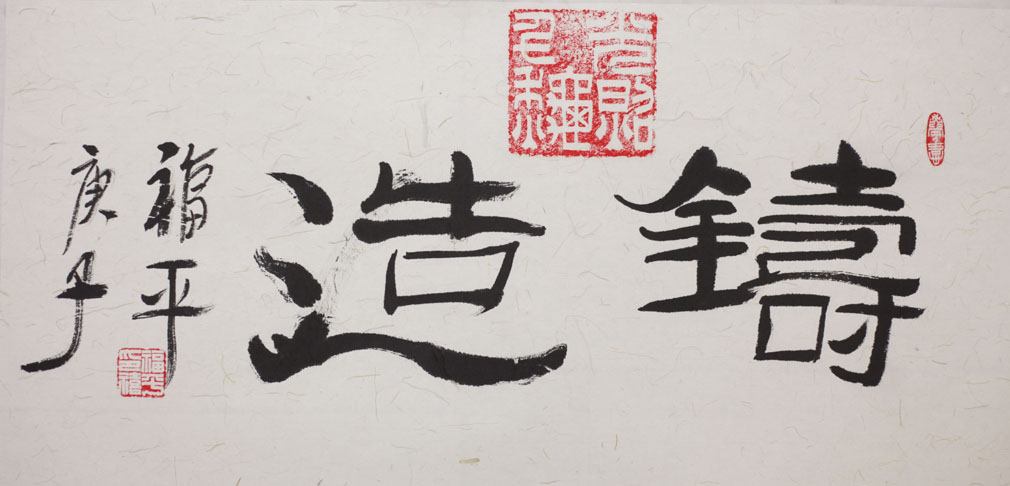 鑄造
福平
庚子